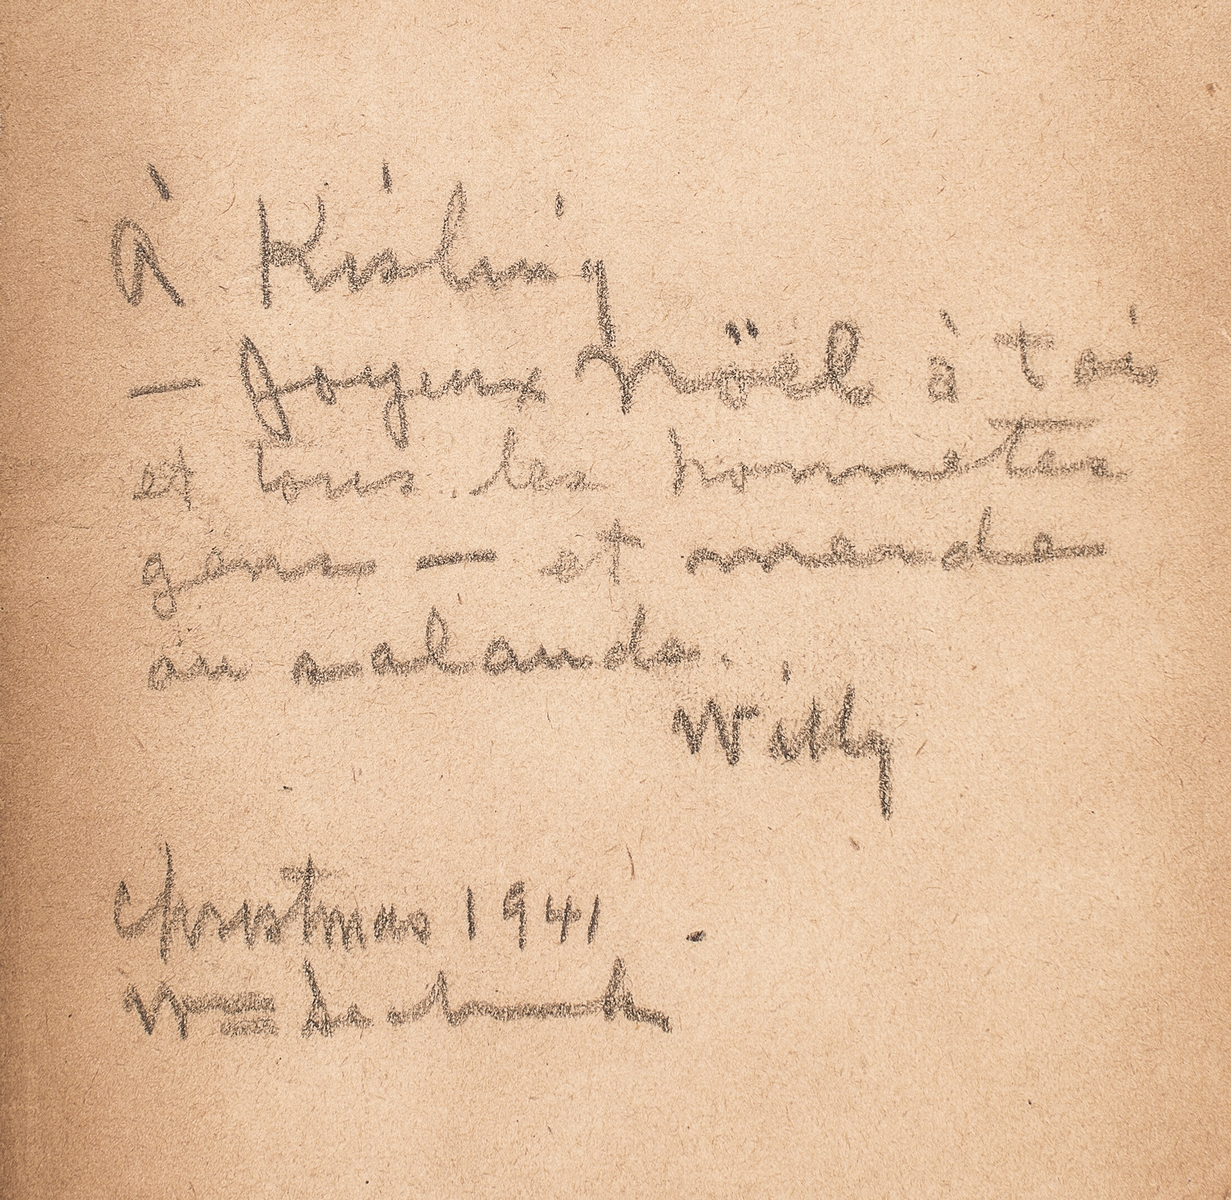 À Kisling
— Joyeux Nöel à toi
et tous les honnetes
gens — et merde
au salauds.
Willy
Christmas 1941
Wm